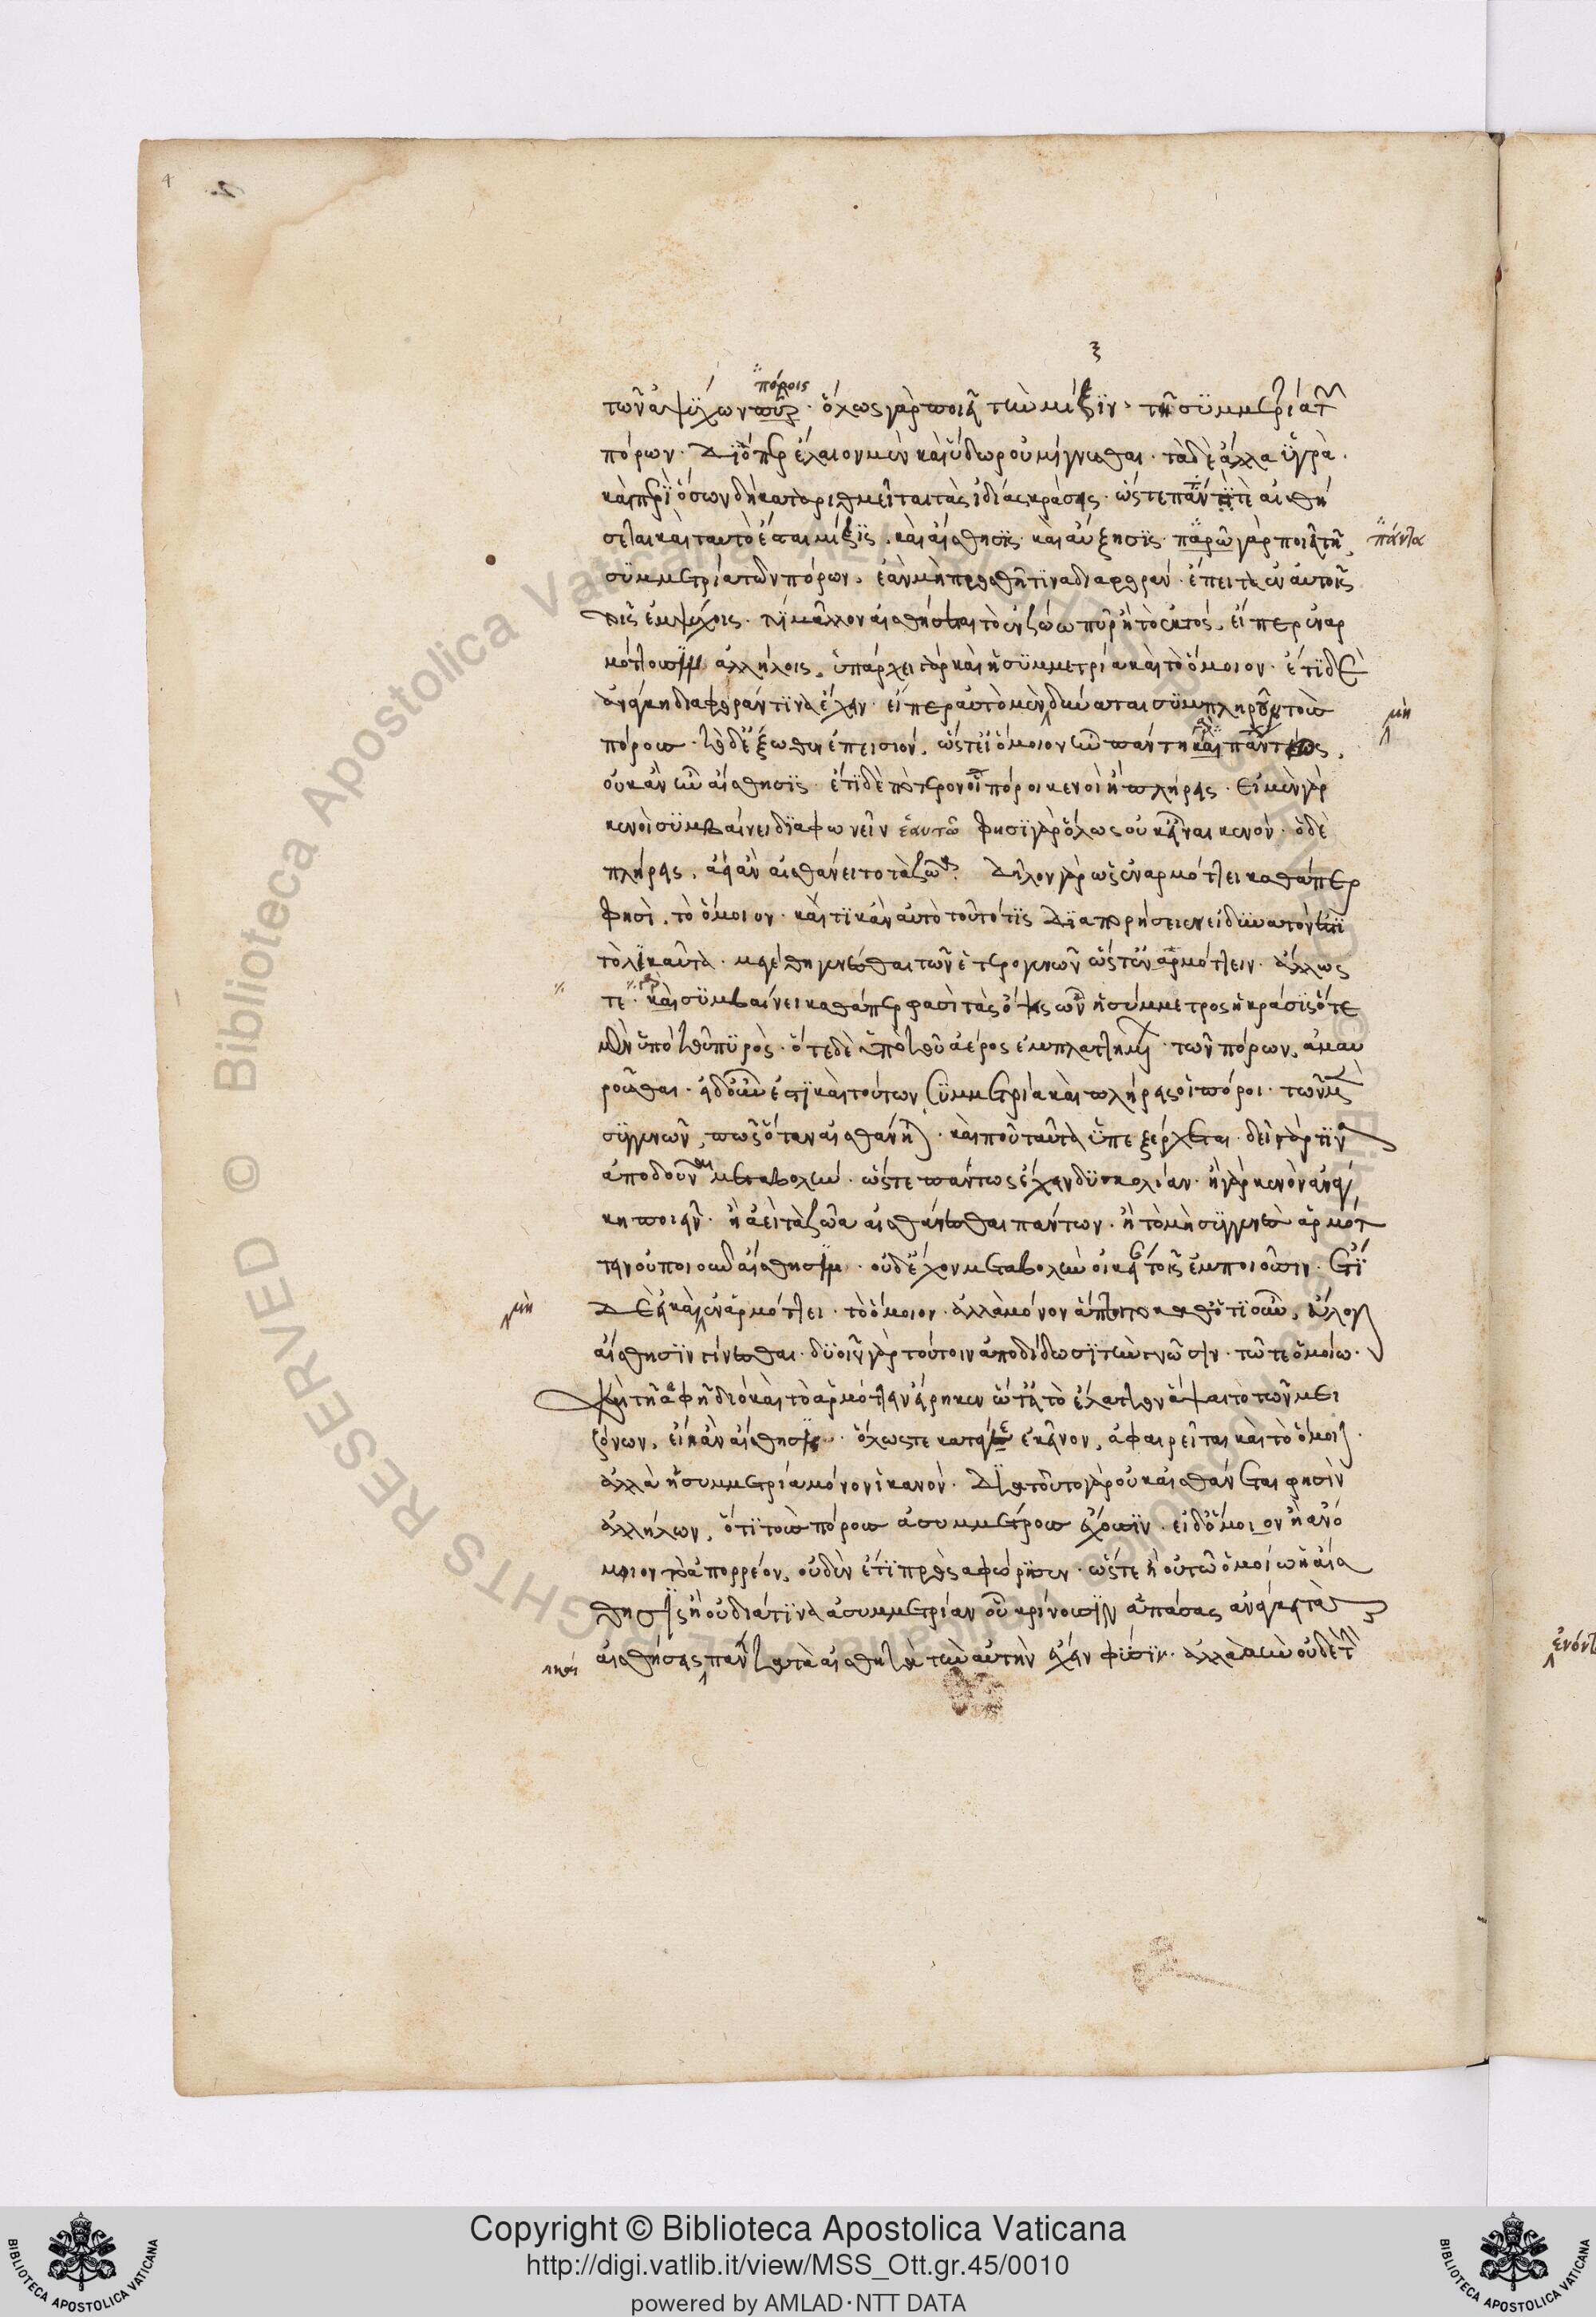 4
ξ
πόροις
τῶν ἀψύχων · ὅλως γὰρ ποιεῖ τὴν μίξιν · τῇ συμμετρίᾳ τῶν
πόρων · διόπερ ἔλαιον μὲν καὶ ὕδωρ οὐ μίγνυσθαι · τὰ δὲ ἄλλα ὑγρὰ ·
καὶ περὶ ὅσων δὴ καταριθμεῖται τὰς ἰδίας κράσεις · ὥστε πάντα τε αἰσθή
σεται καὶ ταυτὸ ἔσται μίξις · καὶ αἴσθησις καὶ αὔξησις · γὰρ ποιεῖ τῇ
πάντα
συμμετρίᾳ τῶν πόρων · ἐὰν μὴ προσθῇ τινα διαφορὰν · ἔπειτα ἐν αὐτοῖς
τοῖς ἐμψύχοις · τί μᾶλλον αἰσθήσεται τὸ ἐν ζώῳ πῦρ ἢ τὸ ἐκτός · εἴπερ ἐναρ
μόττουσιν ἀλλήλοις · ὑπάρχει γὰρ καὶ ἡ συμμετρία καὶ τὸ ὅμοιον · ἔτι δὲ
ἀνάγκη διαφοράν τινα ἔχειν · εἴπερ αὐτὸ μὲν δύναται συμπληροῦν τοὺς
μὴ
πόρους · τὸ δὲ ἔξωθεν ἐπεισιόν · ὥστ' εἰ ὅμοιον ἦν πάντη καὶ πάντως ·
οὐκ ἂν ἦν αἴσθησις · ἔτι δὲ πότερον οἱ πόροι κενοὶ ἢ πλήρεις · εἰ μὲν γὰρ
κενοὶ συμβαίνει διαφωνεῖν ἑαυτῷ φησὶ γὰρ ὅλως οὐκ εἶναι κενόν · εἰ δὲ
πλήρεις · ἀεὶ ἂν αἰσθάνοιτο τὰ ζῷα · δῆλον γὰρ ὡς ἐναρμόττει καθάπερ
φησὶ · τὸ ὅμοιον · καί τοι κἂν αὐτὸ τοῦτό τις διαπορήσειεν εἰ δυνατόν ἐστι
τηλικαῦτα · μεγέθη γενέσθαι τῶν ἑτερογενῶν ὥστ' ἐναρμόττειν · ἄλλως
τε · καὶ συμβαίνει καθάπερ φασὶ τὰς ὄψεις ὧν ἀσύμμετρος ἡ κρᾶσις ὁτὲ
μὲν ὑπὸ τοῦ πυρὸς · ὁτὲ δὲ ὑπὸ τοῦ ἀέρος ἐμπλαττομένων τῶν πόρων · ἀμαυ
ροῦσθαι · εἰ δ' οὖν ἐστὶ καὶ τούτων συμμετρία καὶ πλήρεις οἱ πόροι · τῶν μὴ
συγγενῶν, πῶς ὅταν αἰσθάνηται · καὶ ποῦ ταῦτα ὑπεξέρχεται · δεῖ γάρ τινα
ἀποδοῦναι μεταβολὴν · ὥστε πάντως ἔχειν δυσκολίαν · ἢ γὰρ κενὸν ἀνάγ
κη ποιεῖν · ἢ ἀεὶ τὰ ζῷα αἰσθάνεσθαι πάντων · ἢ τὸ μὴ συγγενὲς ἁρμότ
τειν οὐ ποιοῦν αἴσθησιν · οὐδ' ἔχον μεταβολὴν οἰκείαν τοῖς ἐμποιοῦσιν · ἔτι
δὲ εἰ καὶ ἐναρμόττει · τὸ ὅμοιον · ἀλλὰ μόνον ἅπτοιτο καθ' ὁτιοῦν · εὔλογον
μὴ
αἴσθησιν γίνεσθαι · δυοῖν γὰρ τούτοιν ἀποδίδωσι τὴν γνῶσιν · τῷ τε ὁμοίῳ ·
καὶ τῇ ἁφῇ διὸ καὶ τὸ ἁρμόττειν εἴρηκεν ὥστ' εἰ τὸ ἔλαττον ἅψαιτο τῶν μει
ζόνων · εἴη ἂν αἴσθησις · ὅλως τε κατὰ ἐκεῖνον · ἀφαιρεῖται καὶ τὸ ὅμοιον ·
ἀλλὰ ἡ συμμετρία μόνον ἱκανόν · διὰ τοῦτο γὰρ οὐκ αἰσθάνεσθαι φησὶν
ἀλλήλων · ὅτι τοὺς πόρους ἀσυμμέτρους ἔχουσιν · εἰ δ' ὅμοιον ἢ ἀνό
μοιον τὸ ἀπορρέον · οὐδὲν ἔτι προσαφώρισεν · ὥστε ἢ οὐ τῷ ὁμοίῳ ἡ αἴσ
θησις ἢ οὐ διά τινα ἀσυμμετρίαν οὐ κρίνουσιν ἁπάσας ἀνάγκη τὰς
αἰσθήσεις πάντα τὰ αἰσθητὰ τὴν αὐτὴν ἔχειν φύσιν · ἀλλὰ μὴν οὐδὲ τὴν
καὶ
http://digi.vatlib.it/view/MSS_Ott.gr.45/0010
Copyright © Biblioteca Apostolica Vaticana
powered by AMLAD·NTT DATA
BIBLIOTECA APOSTOLICA VATICANA
BIBLIOTECA APOSTOLICA VATICANA